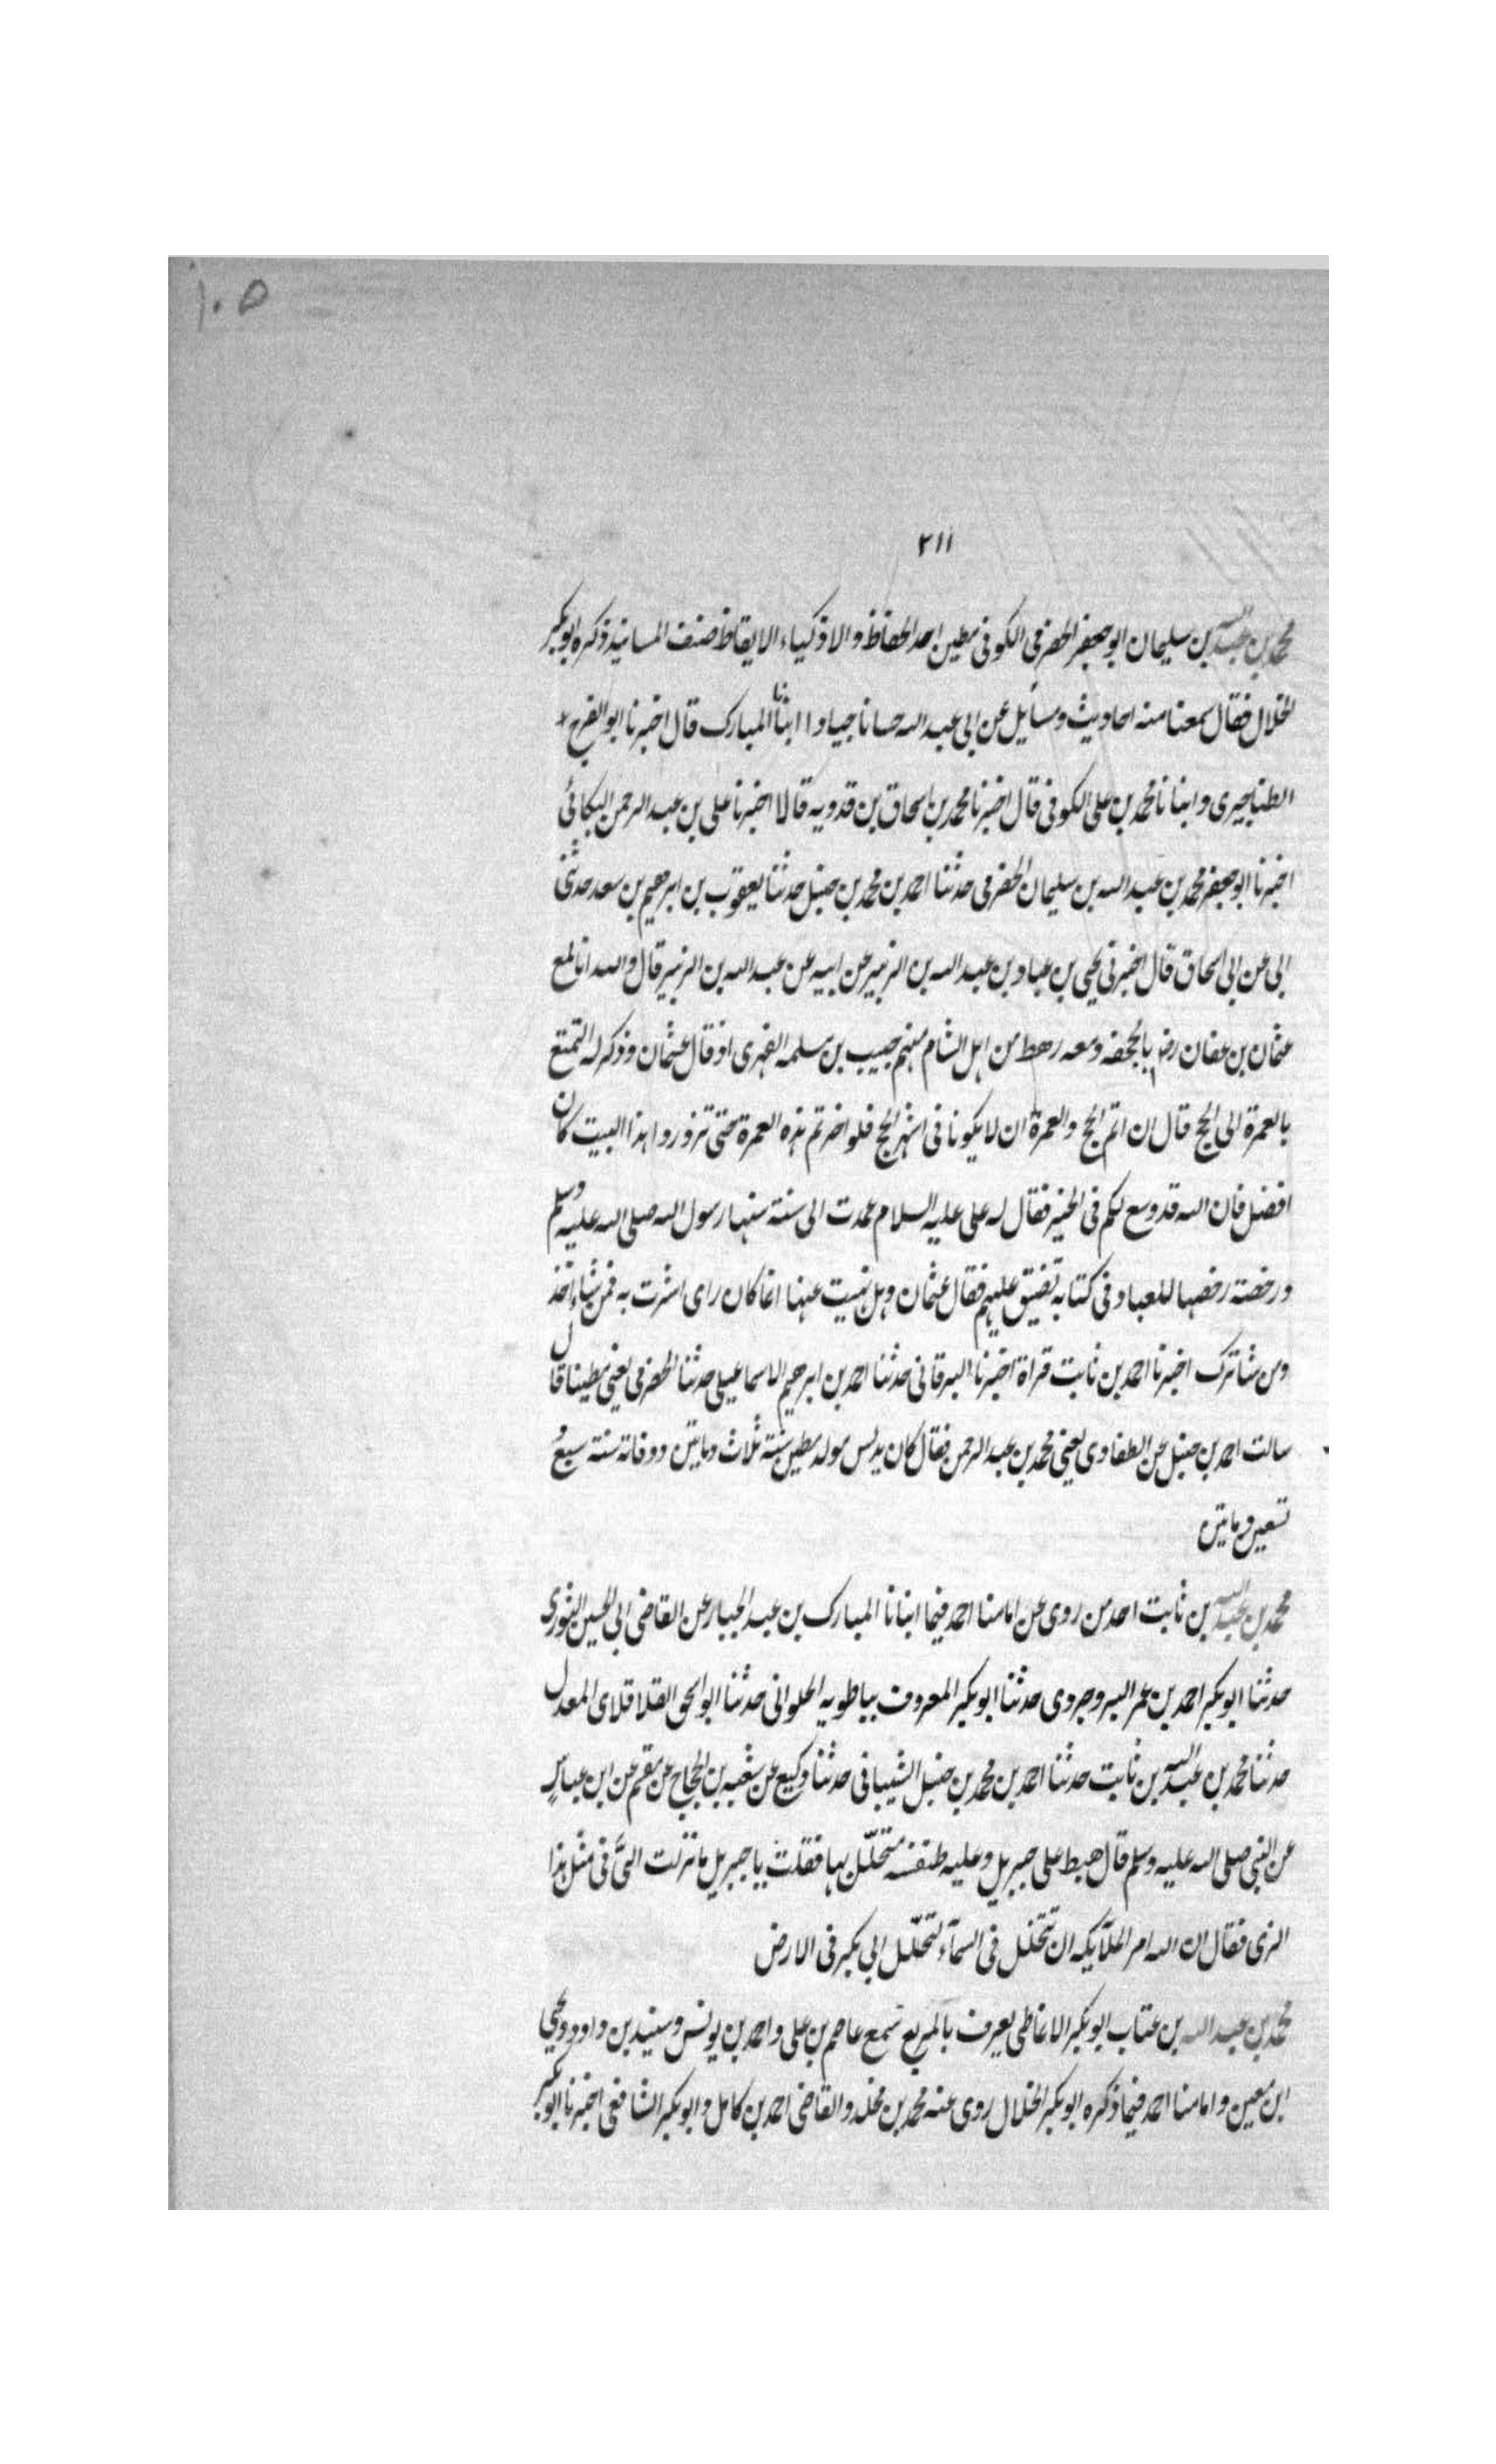 ١٠٥
٢١١
محمد بن عبد الله بن سليمان ابو جعفر الحضرمى الكوفى مطين احد الحفاظ والاذكياء الايقاظ صنف المسانيد ذكره ابو بكر
الخلال فقال سمعنا منه احاديث ومسايل عن ابى عبد الله حسانا جيادا انبأنا المبارك قال اخبرنا ابو الفرج
الطناجيرى وانبانا محمد بن على الكوفى قال اخبرنا محمد بن اسحاق بن فدويه قالا اخبرنا على بن عبد الرحمن البكائى
اخبرنا ابو جعفر محمد بن عبد الله بن سليمان الحضرمى حدثنا احمد بن محمد بن حنبل حدثنا يعقوب بن ابرهيم بن سعد حدثنى
ابى عن ابى اسحاق قال اخبرنى يحيى بن عباد بن عبد الله بن الزبير عن ابيه عن عبد الله بن الزبير قال والله انا لمع
عثمان بن عفان رضـ بالجحفه ومعه رهط من اهل الشام منهم حبيب بن سلمه الفهرى اذ قال عثمان وذكر له التمتع
بالعمرة الى الحج قال ان اتم الحج والعمرة ان لا يكونا فى اشهر الحج فلو اخرتم هذه العمرة حتى تزوروا هذا البيت كان
افضل فان الله قد وسع لكم فى الخير فقال له على عليه السلام عمدت الى سنة سنها رسول الله صلى الله عليه وسلم
ورخصة رخصها للعباد فى كتابه تضيق عليهم فقال عثمان وهل نهيت عنها انما كان راى اشرت به فمن شاء اخذ
ومن شا ترك اخبرنا احمد بن ثابت قراة اخبرنا البرقانى حدثنا احمد بن ابرهيم الاسماعيلى حدثنا الحضرمى يعنى مطينا قال
سالت احمد بن حنبل عن الطفاوى يعنى محمد بن عبد الرحمن فقال كان يدلس مولد مطين سنة ثلاث ومايتين ووفاته سنة سبع و
تسعين ومايتين
محمد بن عبد الله بن ثابت احد من روى عن امامنا احمد فيما انبانا المبارك بن عبد الجبار عن القاضى ابى الحسين التوزى
حدثنا ابو بكر احمد بن عمر البروجردى حدثنا ابو بكر المعروف بباطويه الحلوانى حدثنا ابو اسحق القلاقلاى المعدل
حدثنا محمد بن عبد الله بن ثابت حدثنا احمد بن محمد بن حنبل الشيبانى حدثنا وكيع عن شعبه بن الحجاج عن مقسم عن ابن عباس
عن النبى صلى الله عليه وسلم قال هبط على جبريل وعليه طنفسه متخلل بها فقلت يا جبريل ما نزلت الىّ فى مثل هذا
الزى فقال ان الله امر الملآيكه ان تتخلل فى السمآء لتخلّل ابى بكر فى الارض
محمد بن عبد الله بن عتاب ابو بكر الانماطى يعرف بالمربع سمع عاصم بن على واحمد بن يونس وسنيد بن داود ويحيى
ابن معين وامامنا احمد فيما ذكره ابو بكر الخلال روى عنه محمد بن مخلد والقاضى احمد بن كامل وابو بكر الشافعى اخبرنا ابو بكر